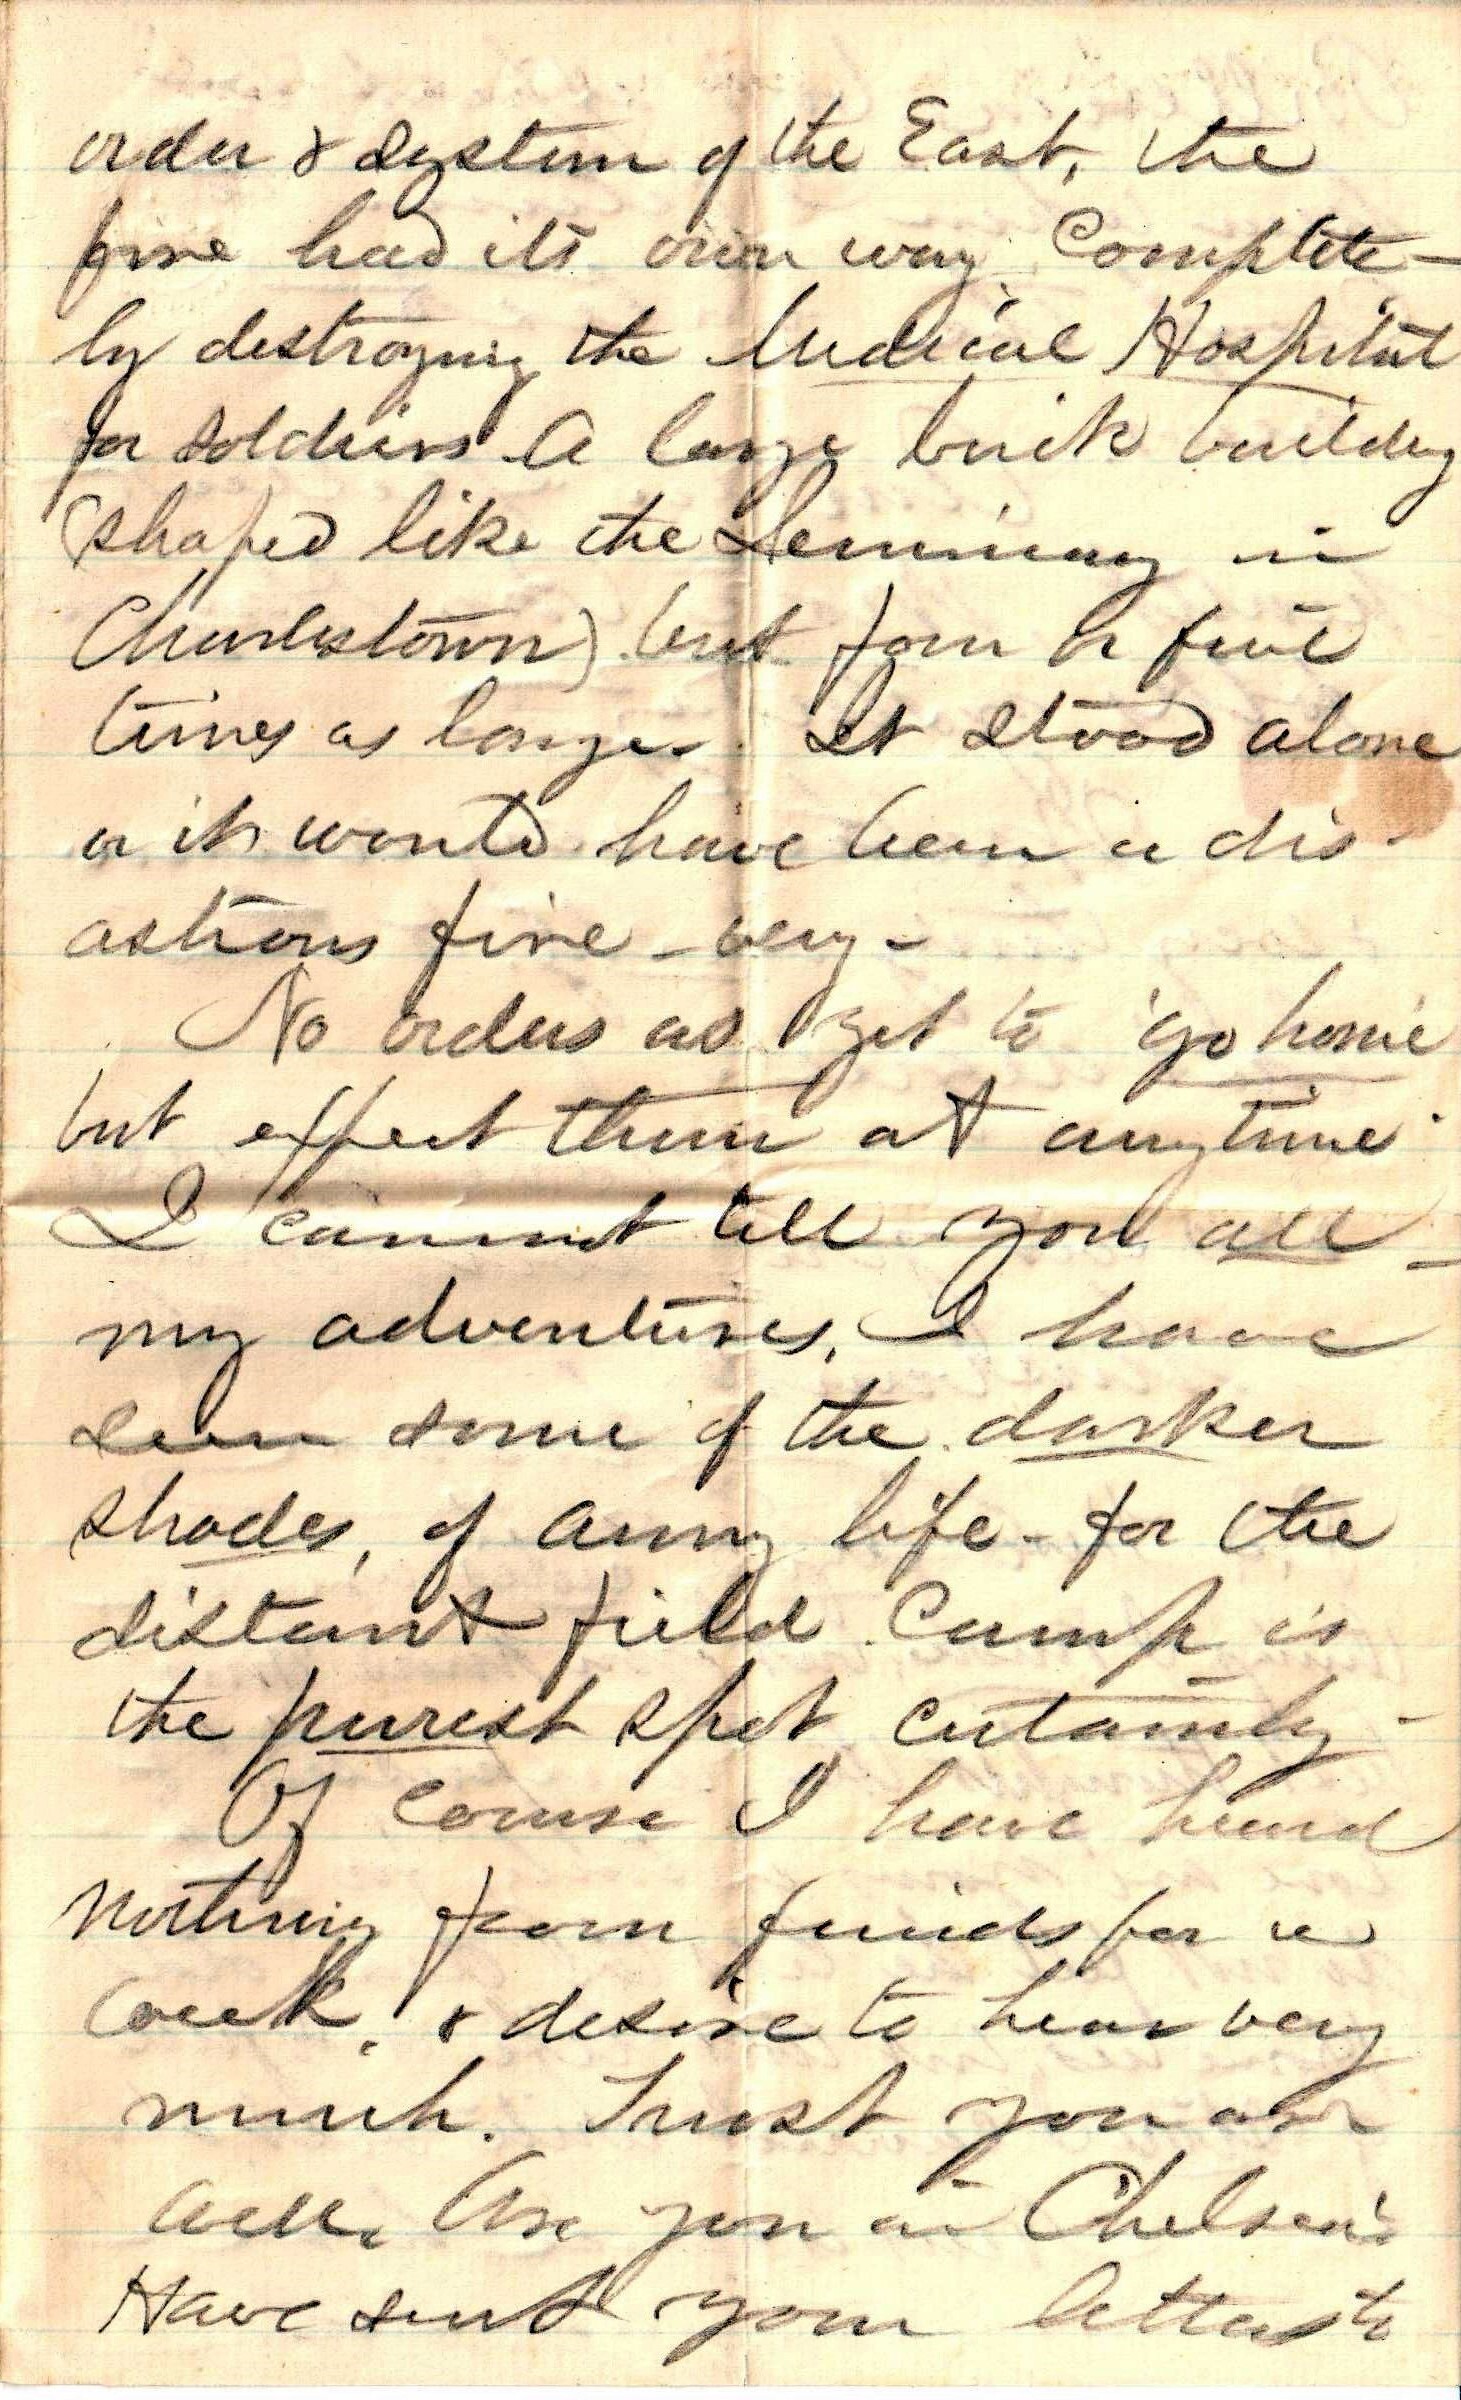 order & system of the East, the
fire had its own way. Complete-
ly destroying the Medical Hospital
for soldiers. A large brick building
(shaped like the Seminary in
Charlestown) but four or five
times as large. It stood alone
or it would have been a dis-
astrous fire - very -
No orders as yet to 'go home
but expect them at anytime.
I cannot tell you all -
my adventures, I have
seen some of the darker
shades, of army life - for the
distant field Camp is
the purest spot certainly -
Of course I have heard
nothing from friends for a
week, & desire to hear very
much. Trust you are
well. Are you in Chelsea?
Have sent your letters to